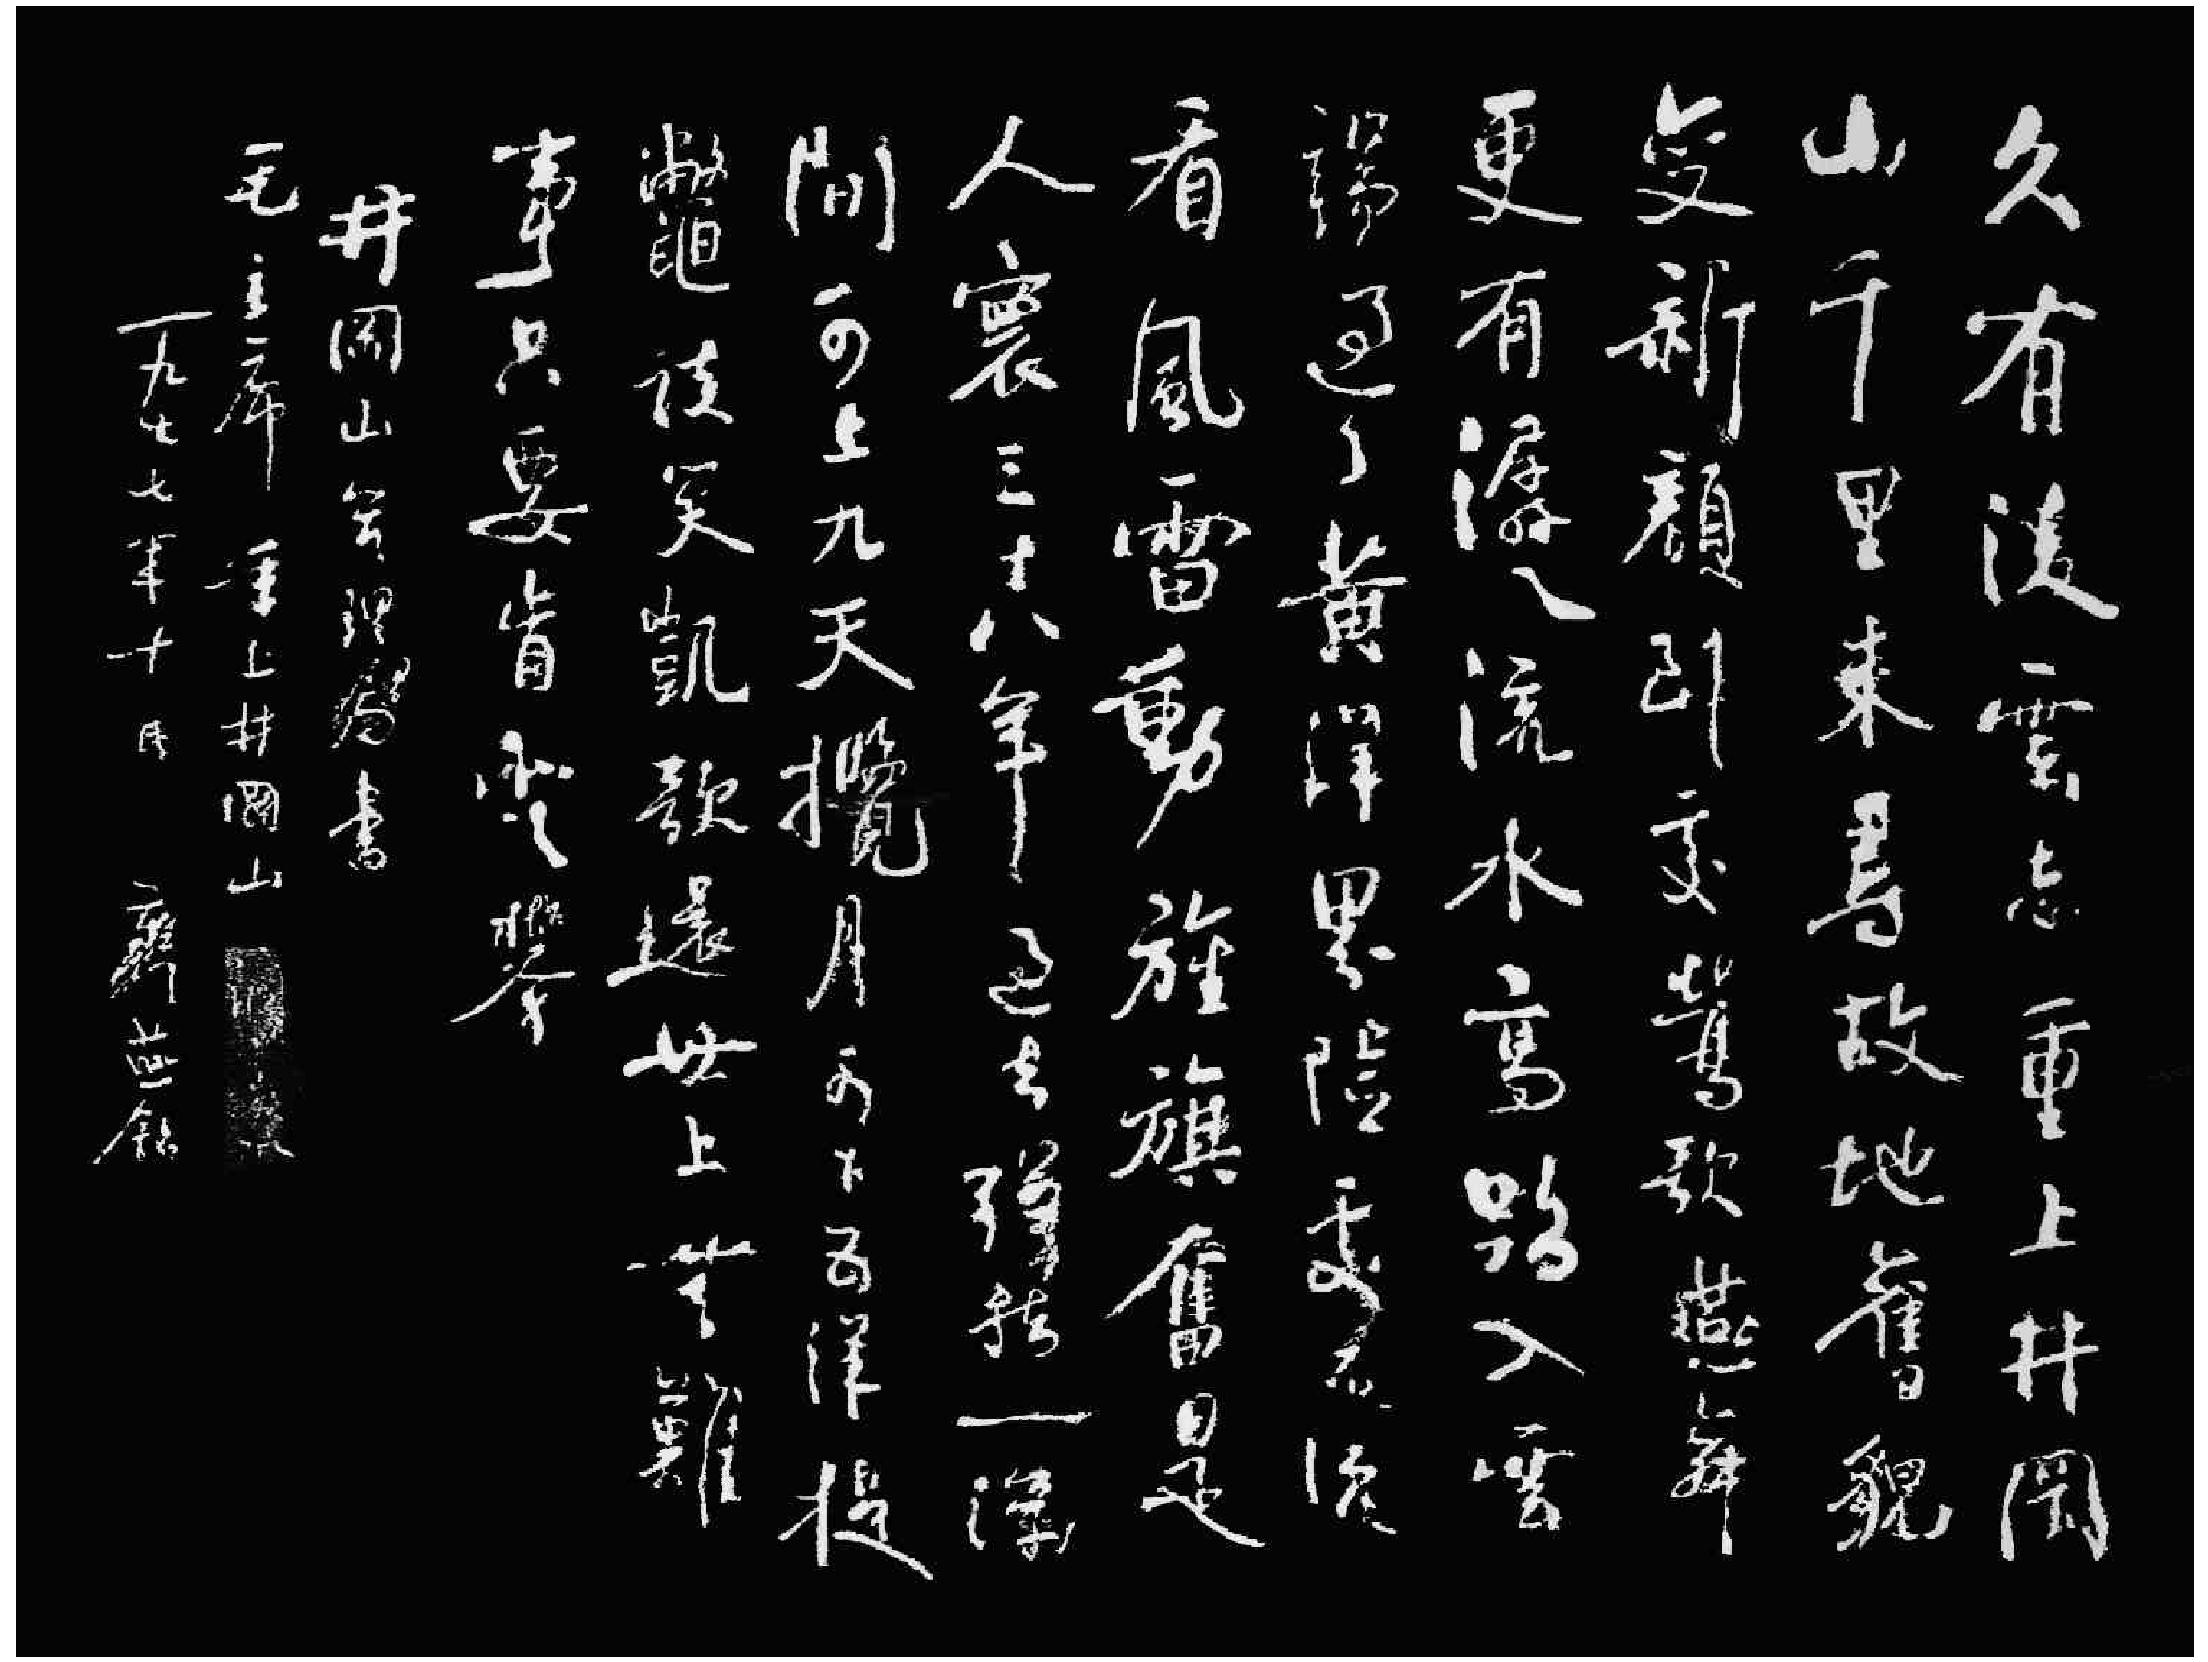 久有凌雲志重上井岡
山千里来尋故地舊貌
变新顔到处鶯歌燕舞
更有潺〻流水高路入雲
端過了黄洋界險處不須
看風雷動旌旗奮是
人寰三十八年過去彈指一揮
間可上九天攬月可下五洋捉
鱉談笑凱歌還世上無難
事只要肯登攀
井岡山書
毛主席重上井岡山
一九七七年十月 齊燕銘